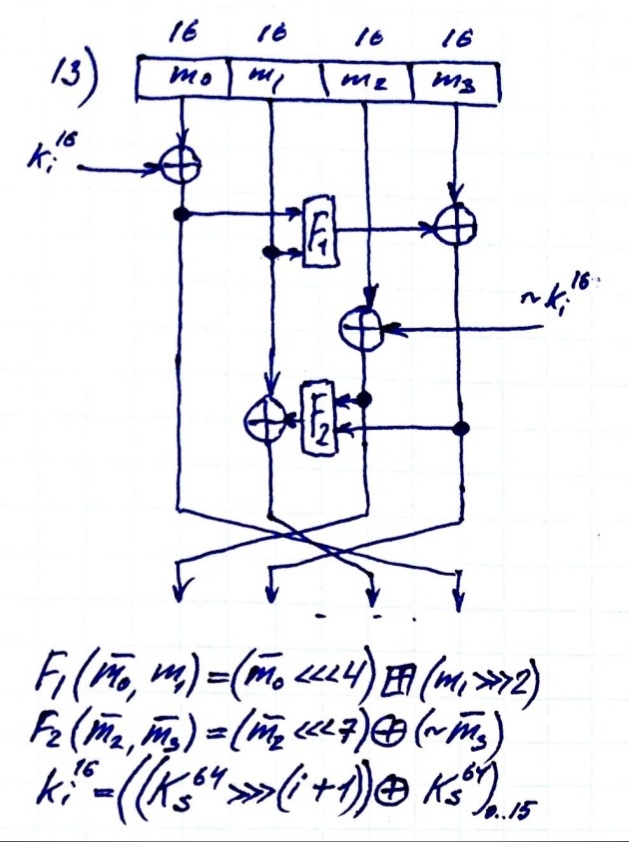 16 16 16 16
13) m₀ m₁ m₂ m₃
kᵢ¹⁶
F₁
~kᵢ¹⁶
F₂
F₁(m̄₀, m₁)=(m̄₀ <<<4)⊞(m₁ >>>2)
F₂(m̄₂, m̄₃)=(m̄₂ <<<7)⊕(~m̄₃)
kᵢ¹⁶=((Kₛ⁶⁴ >>>(i+1))⊕ Kₛ⁶⁴)₀..₁₅